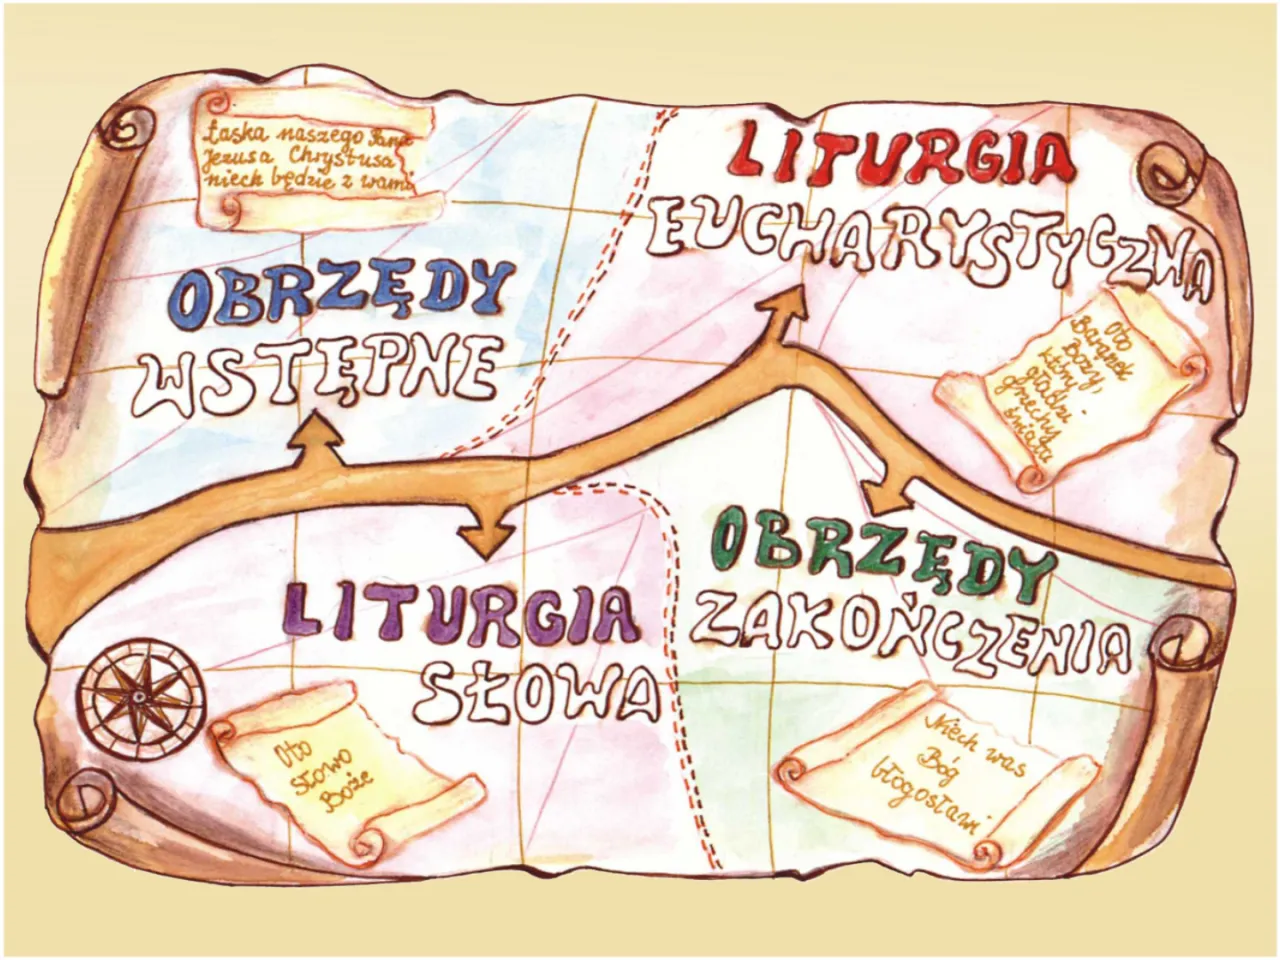 Łaska naszego Pana
Jezusa Chrystusa
niech będzie z wami
OBRZĘDY
WSTĘPNE
LITURGIA
EUCHARYSTYCZNA
Oto
Baranek
Boży,
który
gładzi
grzechy
świata
LITURGIA
SŁOWA
Oto
słowo
Boże
OBRZĘDY
ZAKOŃCZENIA
Niech was
Bóg
błogosławi